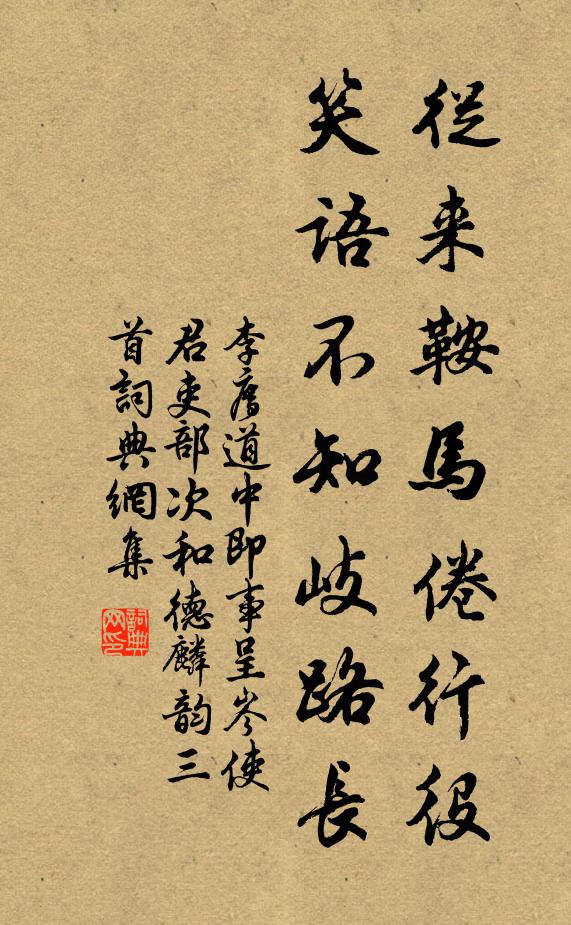 從来鞍馬倦行役
笑語不知歧路長
李廌道中即事呈岑使
君吏部次和德麟韵三
首詞典網集
詞典
网印